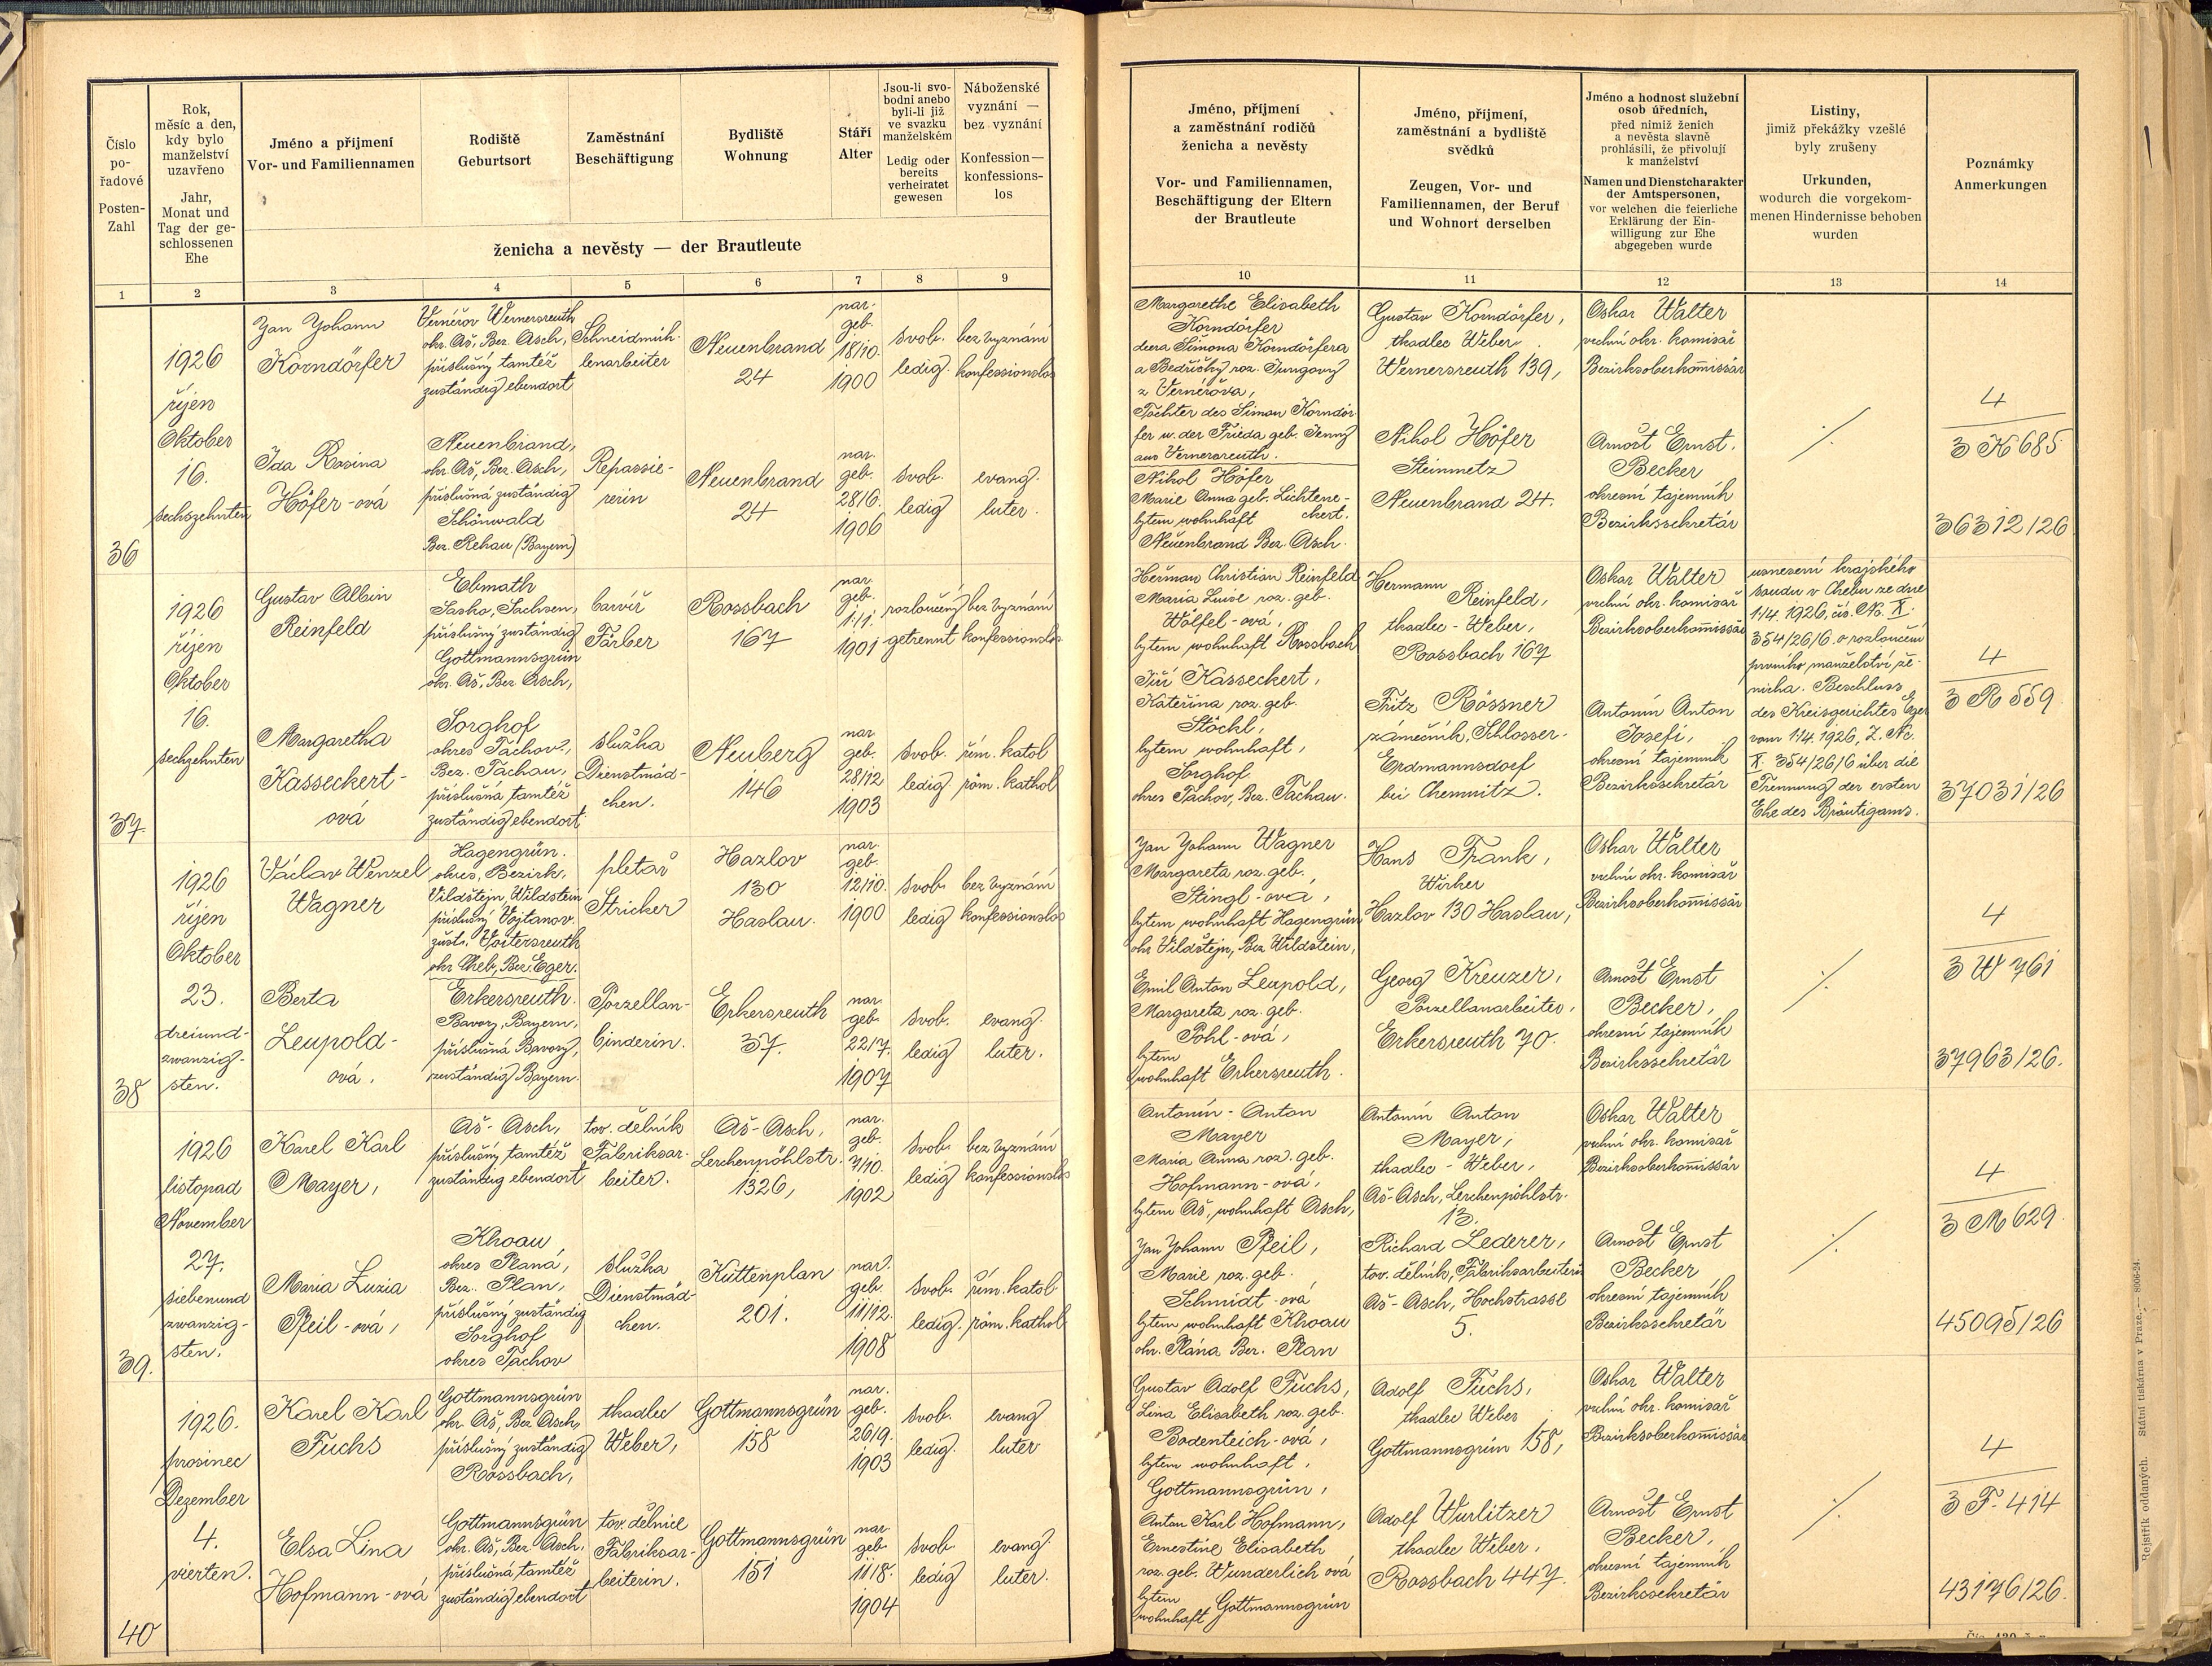 Číslo
po-
řadové
Posten-
Zahl
Rok,
měsíc a den,
kdy bylo
manželství
uzavřeno
Jahr,
Monat und
Tag der ge-
schlossenen
Ehe
Jméno a příjmení
Vor- und Familiennamen
Rodiště
Geburtsort
Zaměstnání
Beschäftigung
Bydliště
Wohnung
Stáří
Alter
Jsou-li svo-
bodni anebo
byli-li již
ve svazku
manželském
Ledig oder
bereits
verheiratet
gewesen
Náboženské
vyznání —
bez vyznání
Konfession —
konfessions-
los
ženicha a nevěsty — der Brautleute
1 2 3 4 5 6 7 8 9
Jméno, příjmení
a zaměstnání rodičů
ženicha a nevěsty
Vor- und Familiennamen,
Beschäftigung der Eltern
der Brautleute
Jméno, příjmení,
zaměstnání a bydliště
svědků
Zeugen, Vor- und
Familiennamen, der Beruf
und Wohnort derselben
Jméno a hodnost služební
osob úředních,
před nimiž ženich
a nevěsta slavně
prohlásili, že přivolují
k manželství
Namen und Dienstcharakter
der Amtspersonen,
vor welchen die feierliche
Erklärung der Ein-
willigung zur Ehe
abgegeben wurde
Listiny,
jimiž překážky vzešlé
byly zrušeny
Urkunden,
wodurch die vorgekom-
menen Hindernisse behoben
wurden
Poznámky
Anmerkungen
10 11 12 13 14
36
1926
říjen
Oktober
16.
sechszehnten
Jan Johann
Korndörfer
Vernéřov Wernersreuth
okr. Aš, Bez. Asch,
příslušný tamtéž
zuständig ebendort
Schneidmüh-
lenarbeiter
Neuenbrand
24
nar.
geb.
18/10.
1900
svob.
ledig.
bez vyznání
konfessionslos
Ida Rosina
Höfer-ová
Neuenbrand,
okr. Aš, Bez. Asch,
příslušná zuständig
Schönwald
Bez. Rehau (Bayern)
Repassie-
rerin
Neuenbrand
24
nar.
geb.
28/6.
1906
svob.
ledig
evang.
luter.
Margarethe Elisabeth
Korndörfer
dcera Simona Korndörfera
a Bedřišky roz. Jungovy
z Vernéřova,
Tochter des Simon Korndör-
fer u. der Frieda geb.
aus Wernersreuth.
Nikol Höfer
Marie Anna geb. Lichtene-
ckert.
bytem wohnhaft
Neuenbrand Bez. Asch.
Gustav Korndörfer,
tkadlec Weber
Wernersreuth 139,
Nikol Höfer
Steinmetz
Neuenbrand 24.
Oskar Walter
vrchní okr. komisař
Bezirksoberkom̄issär
Arnošt Ernst.
Becker
okresní tajemník
Bezirkssekretär
./.
4
3 K 685
36312/26
37.
1926
říjen
Oktober
16.
sechzehnten
Gustav Albin
Reinfeld
Ebmath
Sasko, Sachsen,
příslušný zuständig
Gottmannsgrün
okr. Aš, Bez Asch,
barvíř
Färber
Rossbach
167
nar.
geb.
1./11.
1901
rozloučený
getrennt
bez vyznání
konfessionslos
Margaretha
Kasseckert-
ová
Sorghof
okres Tachov,
Bez. Tachau,
příslušná tamtéž
zuständig ebendort
služka
Dienstmäd-
chen.
Neuberg
146
nar
geb.
28/12
1903
svob.
ledig
řím. katol
röm. kathol
Heřman Christian Reinfeld
Maria Luise roz. geb.
Wölfel-ová,
bytem wohnhaft Rossbach
Jiří Kasseckert,
Kateřina roz. geb.
Stöckl,
bytem wohnhaft,
Sorghof
okres Tachov, Bez. Tachau.
Hermann
Reinfeld,
tkadlec - Weber,
Rossbach 167
Fritz Rössner
zámečník, Schlosser-
Erdmannsdorf
bei Chemnitz.
Oskar Walter
vrchní okr. komisař
Bezirksoberkom̄issär
Antonín Anton
Josefi,
okresní tajemník
Bezirkssekretär
usnesení krajského
soudu v Chebu ze dne
1/4. 1926, čís. Nc. X.
354/26/6 o rozloučení
prvního manželství že-
nicha. Beschluss
des Kreisgerichtes Eger
vom 1/4. 1926, Z. Nc.
X. 354/26/6 über die
Trennung der ersten
Ehe des Bräutigams.
4
3 R 559
37031/26
38
1926
říjen
Oktober
23.
dreiund-
zwanzig-
sten.
Václav Wenzel
Wagner
Hagengrün.
okres, Bezirk,
Vildštejn, Wildstein
příslušný Vojtanov.
zust. Voitersreuth
okr Cheb, Bez. Eger.
pletař
Stricker
Hazlov
130
Haslau.
nar.
geb.
12/10.
1900
svob.
ledig
bez vyznání
konfessionslos
Berta
Leupold-
ová.
Erkersreuth.
Bavory, Bayern,
příslušná Bavory,
zuständig Bayern.
Porzellan-
binderin.
Erkersreuth
37.
nar
geb.
22/7.
1907
svob.
ledig
evang.
luter.
Jan Johann Wagner
Margareta roz. geb.
Stingl-ová,
bytem wohnhaft Hagengrün
okr Vildštejn, Bez Wildstein,
Emil Anton Leupold,
Margareta roz. geb.
Pohl-ová,
bytem
wohnhaft Erkersreuth.
Hans Frank,
Wirker
Hazlov 130 Haslau,
Georg Kreuzer,
Porzellanarbeiter,
Erkersreuth 70.
Oskar Walter
vrchní okr. komisař
Bezirksoberkom̄issär
Arnošt Ernst
Becker,
okresní tajemník
Bezirkssekretär
./.
4
3 W 761
37963/26.
39.
1926
listopad
November
27.
siebenund
zwanzig-
sten.
Karel Karl
Mayer,
Aš-Asch,
příslušný tamtéž
zuständig ebendort
tov. dělník
Fabriksar-
beiter.
Aš-Asch,
Lerchenpöhlstr.
1326,
nar.
geb.
3/10.
1902
svob.
ledig
bez vyznání
konfessionslos
Maria Luzia
Pfeil-ová,
Khoau
okres Planá,
Bez. Plan,
příslušný zuständig
Sorghof
okres Tachov
služka
Dienstmäd-
chen.
Kuttenplan
201.
nar.
geb.
11/12.
1908
svob.
ledig.
řím. katol
röm. kathol
Antonín - Anton
Mayer
Maria Anna roz. geb.
Hofmann-ová,
bytem Aš, wohnhaft Asch,
Jan Johann Pfeil,
Marie roz. geb.
Schmidt-ová
bytem wohnhaft Khoau
okr. Planá Bez. Plan
Antonín Anton
Mayer,
tkadlec - Weber,
Aš-Asch, Lerchenpöhlstr.
13.
Richard Lederer,
tov. dělník, Fabriksarbeiter
Aš-Asch, Hochstrasse
5.
Oskar Walter
vrchní okr. komisař
Bezirksoberkom̄issär
Arnošt Ernst
Becker
okresní tajemník
Bezirkssekretär
./.
4
3 M 629.
45095/26
40
1926.
prosinec
Dezember
4.
vierten.
Karel Karl
Fuchs
Gottmannsgrün
okr. Aš, Bez Asch,
příslušný zuständig
Rossbach,
tkadlec
Weber,
Gottmannsgrün
158
nar.
geb.
26/9.
1903
svob.
ledig.
evang
luter
Elsa Lina
Hofmann-ová
Gottmannsgrün
okr. Aš, Bez Asch,
příslušná tamtéž
zuständig ebendort
tov. dělnice
Fabriksar-
beiterin.
Gottmannsgrün
151
nar
geb.
11/8.
1904
svob.
ledig
evang.
luter.
Gustav Adolf Fuchs,
Lina Elisabeth roz. geb.
Bodenteich-ová,
bytem wohnhaft,
Gottmannsgrün,
Anton Karl Hofmann,
Ernestine Elisabeth
roz. geb. Wunderlich ová
bytem
wohnhaft Gottmannsgrün
Adolf Fuchs,
tkadlec Weber
Gottmannsgrün 158,
Adolf Wurlitzer
tkadlec Weber,
Rossbach 447.
Oskar Walter
vrchní okr. komisař
Bezirksoberkom̄issär
Arnošt Ernst
Becker,
okresní tajemník
Bezirkssekretär
./.
4
3 F. 414
43176/26.
Rejstřík oddaných. Státní tiskárna v Praze. — 8006-24.